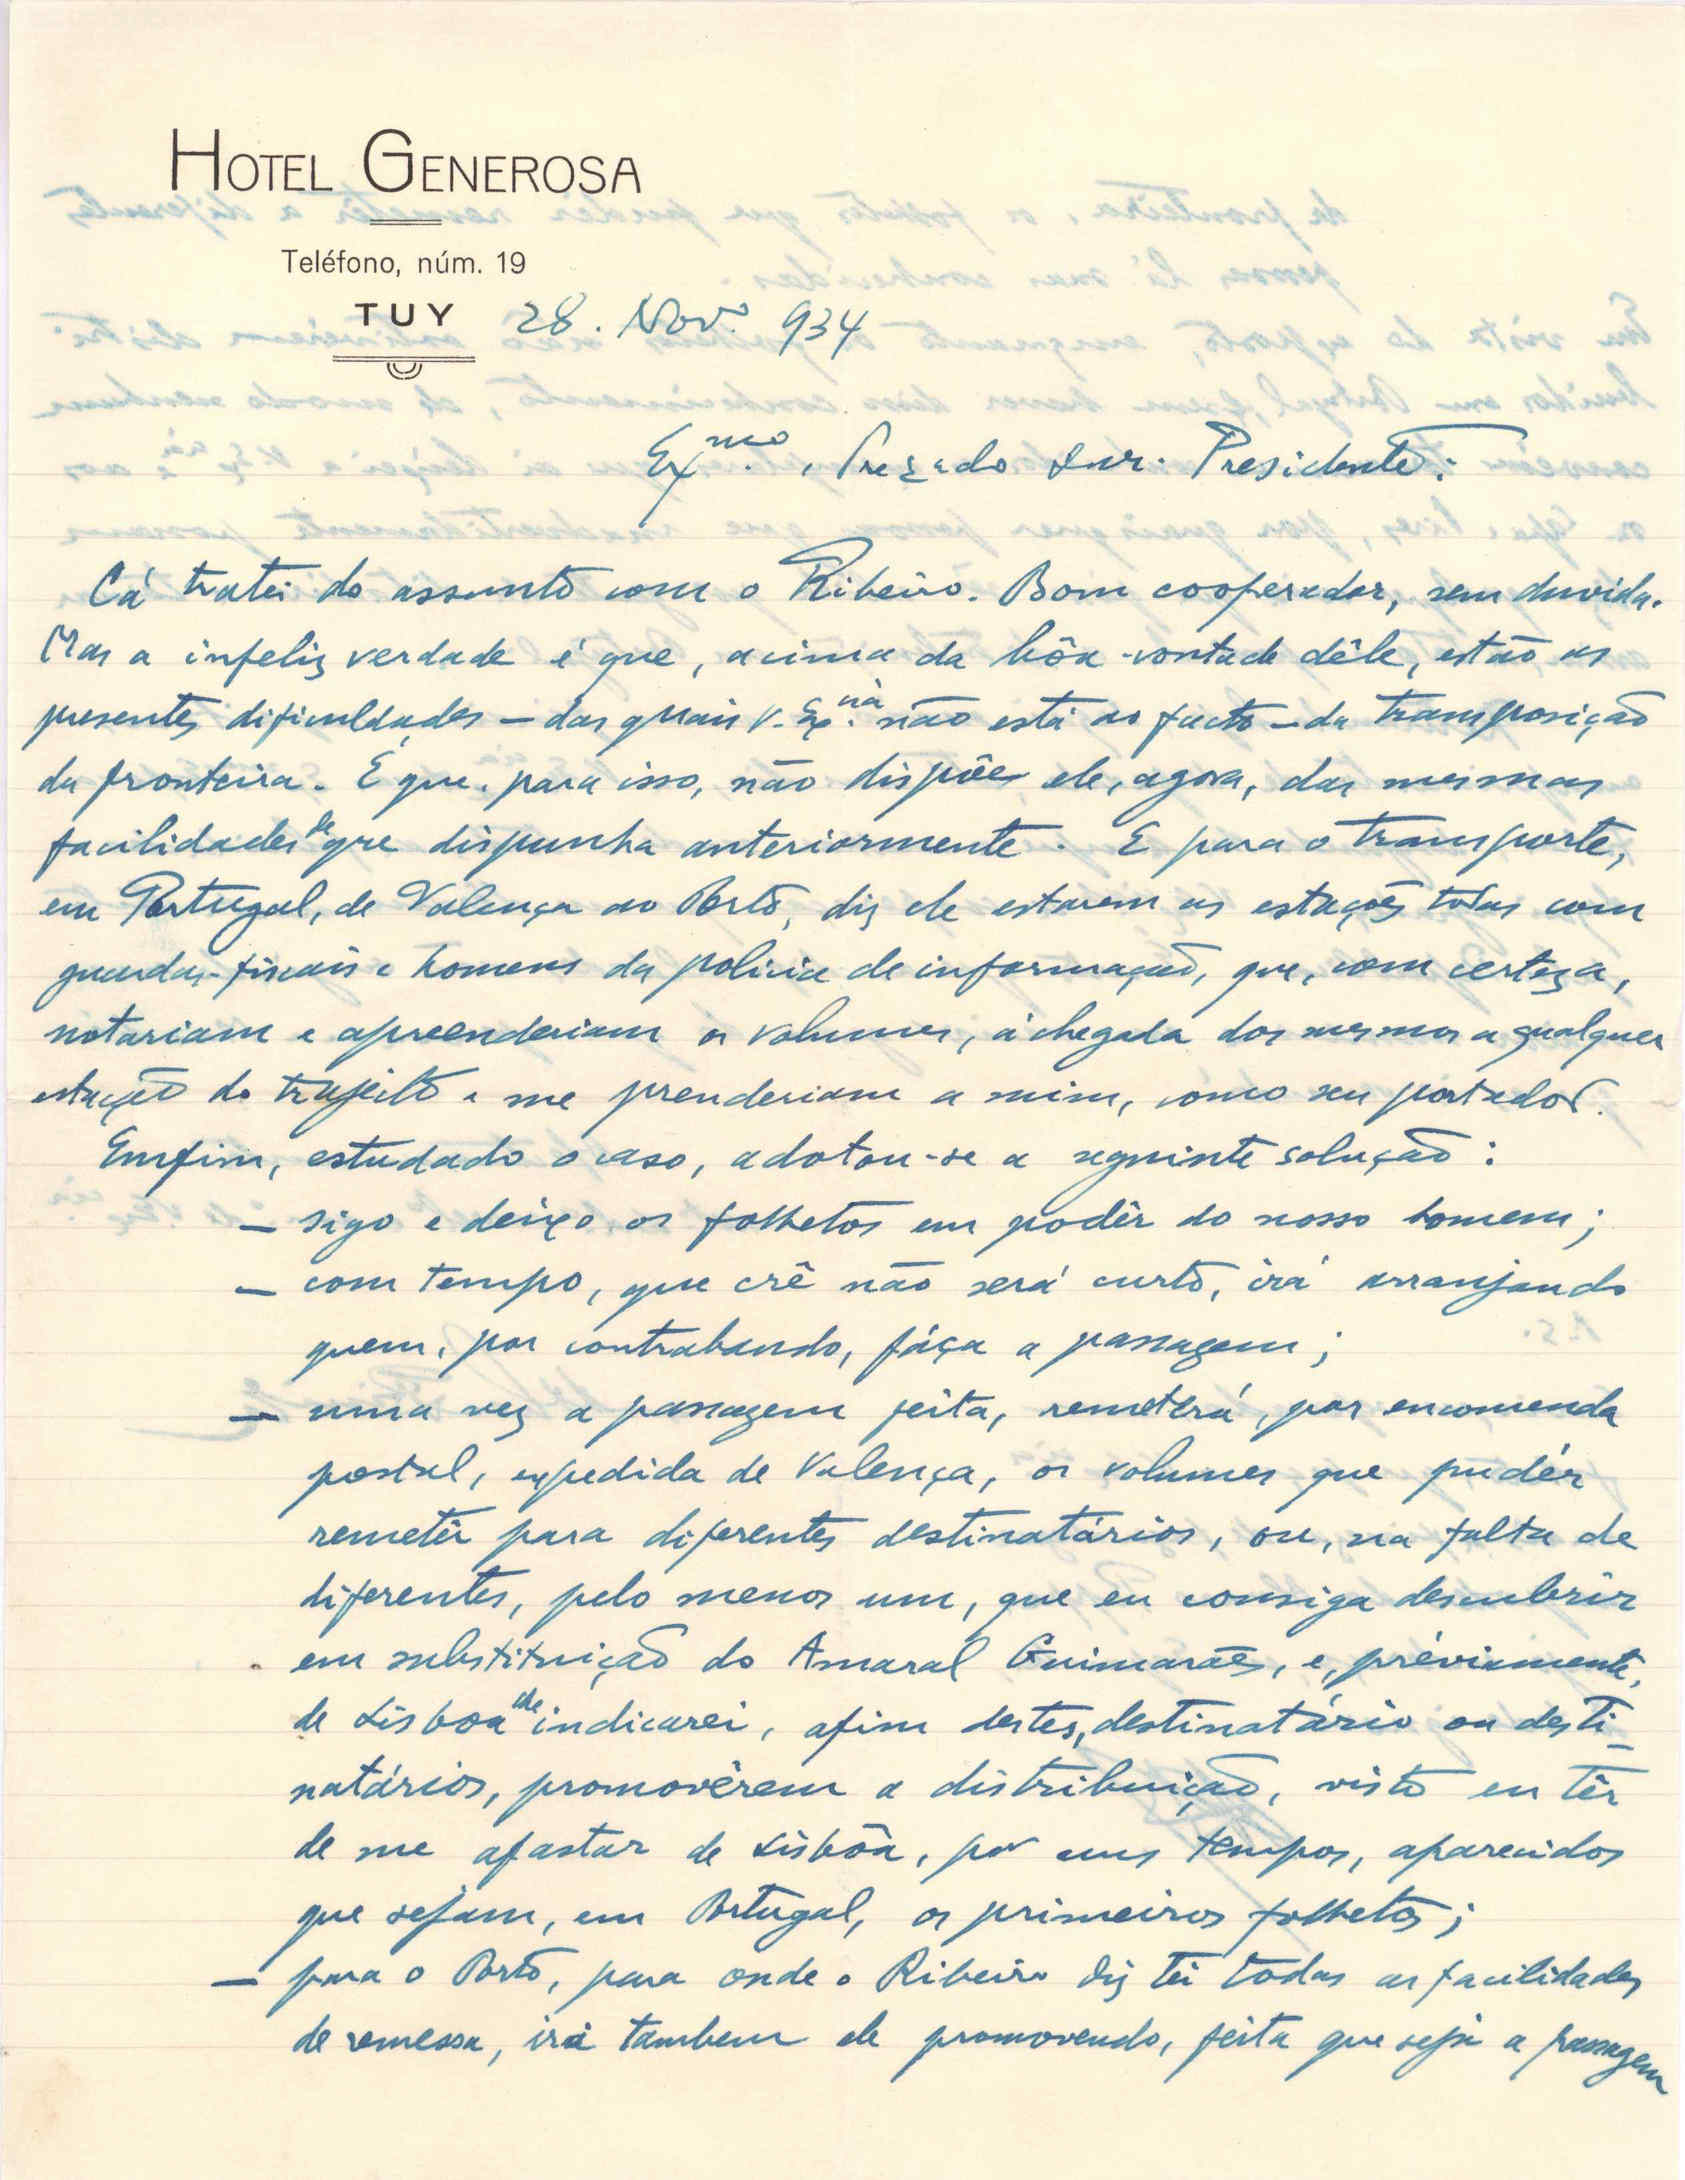 HOTEL GENEROSA
Teléfono, núm. 19
TUY 28. Nov.º 934
Exmo. , Prezado Snr. Presidente:
Cá tratei do assunto com o Ribeiro. Bom cooperador, sem duvida.
Mas a infeliz verdade é que, acima da bôa-vontade dêle, estão as
presentes dificuldades – das quais V. Exciâ. não está ao facto – da transposição
da fronteira. É que, para isso, não dispõe ele, agora, das mesmas
facilidades de que dispunha anteriormente. E para o transporte,
em Portugal, de Valença ao Porto, diz ele estarem as estações todas com
guardas-fiscais e homens da policia de informação, que, com certeza,
notariam e apreenderiam os volumes, á chegada dos mesmos a qualquer
estação do trajeito e me prenderiam a mim, como seu portador.
Emfim, estudado o caso, adotou-se a seguinte solução:
– sigo e deixo os folhetos em podêr do nosso homem;
– com tempo, que crê não será curto, irá arranjando
quem, por contrabando, fáça a passagem;
– uma vez a passagem feita, remeterá, por encomenda
postal, expedida de Valença, os volumes que pudér
remetêr para diferentes destinatários, ou, na falta de
diferentes, pelo menos um, que eu consiga descubrir
em substituição do Amaral Guimarães, e, préviamente,
de Lisboa lhe indicarei, afim destes, destinatário ou desti-
natários, promovêrem a distribuição, visto eu têr
de me afastar de Lisbôa, por uns tempos, aparecidos
que sejam, em Portugal, os primeiros folhetos;
– para o Porto, para onde o Ribeiro diz têr todas as facilidades
de remessa, irá tambem ele promovendo, feita que seja a passagem